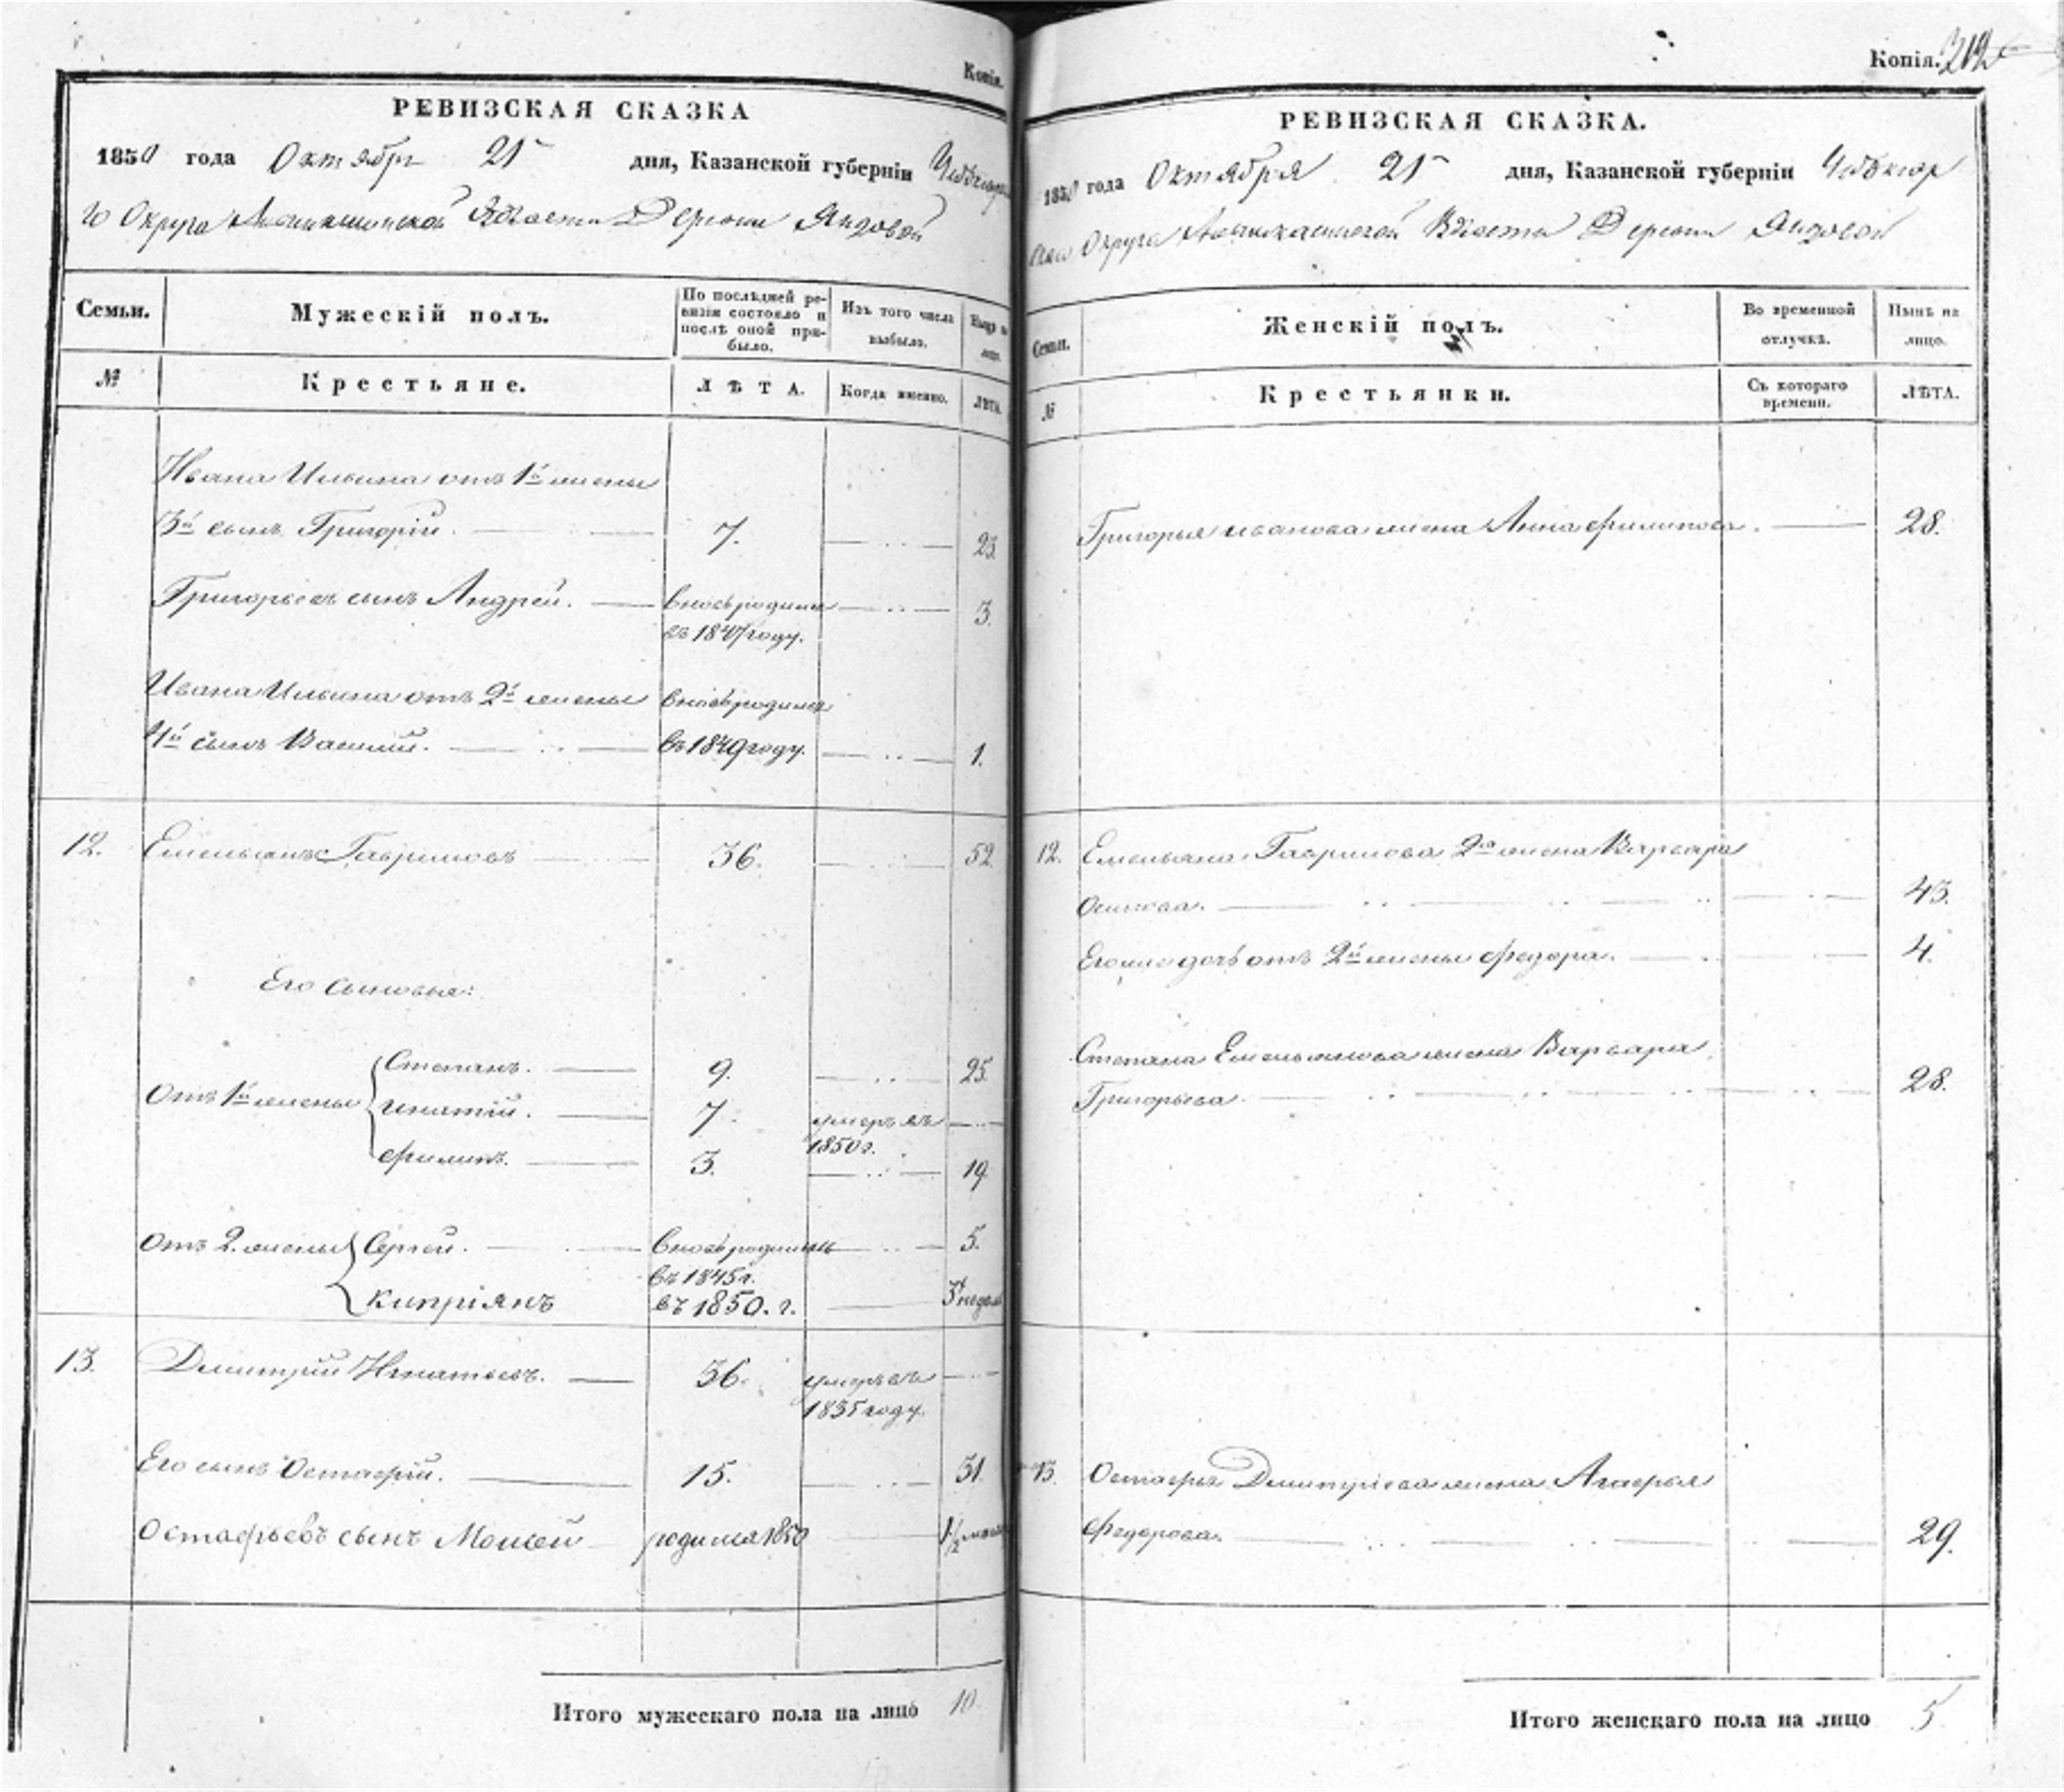 Копія.
РЕВИЗСКАЯ СКАЗКА
1850 года Октября 21 дня, Казанской губерніи
го Округа Волости Деревни Яндовой
Семьи.
Мужескій полъ.
По послѣдней ре-
визіи состояло и
послѣ оной при-
было.
Изъ того числа
выбыло.
Нынѣ на
лицо.
№
Крестьяне.
ЛѢТА.
Когда именно.
ЛѢТА.
Ивана Ильина отъ 1й жены
3й сынъ Григорій. 7. 23.
Григорьевъ сынъ Андрей. вновь родился 3.
въ 1847 году.
Ивана Ильина отъ 2й жены вновь родился
4й сынъ Василій. въ 1849 году. 1.
12. Емельянъ Гавриловъ 36. 52.
Его сыновья:
Отъ 1й жены
Степанъ. 9. 25.
Игнатій. 7. умеръ въ
1850 г.
Филипъ. 3. 19.
Отъ 2. жены Сергей. вновь родился 5.
въ 1845 г.
Кипріянъ въ 1850. г. 3 недели
13. Дмитрій Игнатьевъ. 36. умеръ въ
1835 году.
Его сынъ Остафій. 15. 31.
Остафьевъ сынъ Моисей родился 1850 1 1/2
Итого мужескаго пола на лицо 10.
Копія. 212
РЕВИЗСКАЯ СКАЗКА.
1850 года Октября 21 дня, Казанской губерніи Чебоксар
скаго Округа Волости Деревни Яндовой
Семьи.
Женскій полъ.
Во временной
отлучкѣ.
Нынѣ на
лицо.
№
Крестьянки.
Съ котораго
времени.
ЛѢТА.
Григорья Иванова жена Анна Филипова. 28.
12. Емельяна Гаврилова 2я жена Варвара
Осипова. 43.
Его же дочь отъ 2й жены Федора. 4.
Степана Емельянова жена Варвара
Григорьева. 28.
13. Остафья Дмитріева жена Агафья
Федорова. 29.
Итого женскаго пола на лицо 5